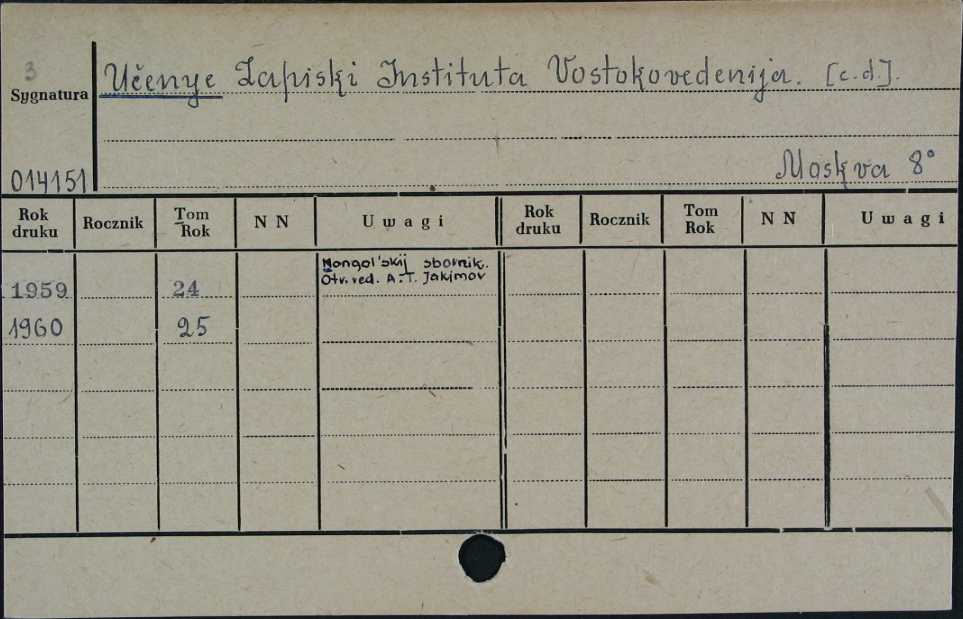 3
Učenye Zapiski Instituta Vostokovedenija. [c.d.].
Sygnatura
014151
Moskva 8°
Rok druku Rocznik Tom Rok N N Uwagi Rok druku Rocznik Tom Rok N N Uwagi
Mongol'skij sbornik.
Otv. red. A.T. Jakimov
1959 24
1960 25